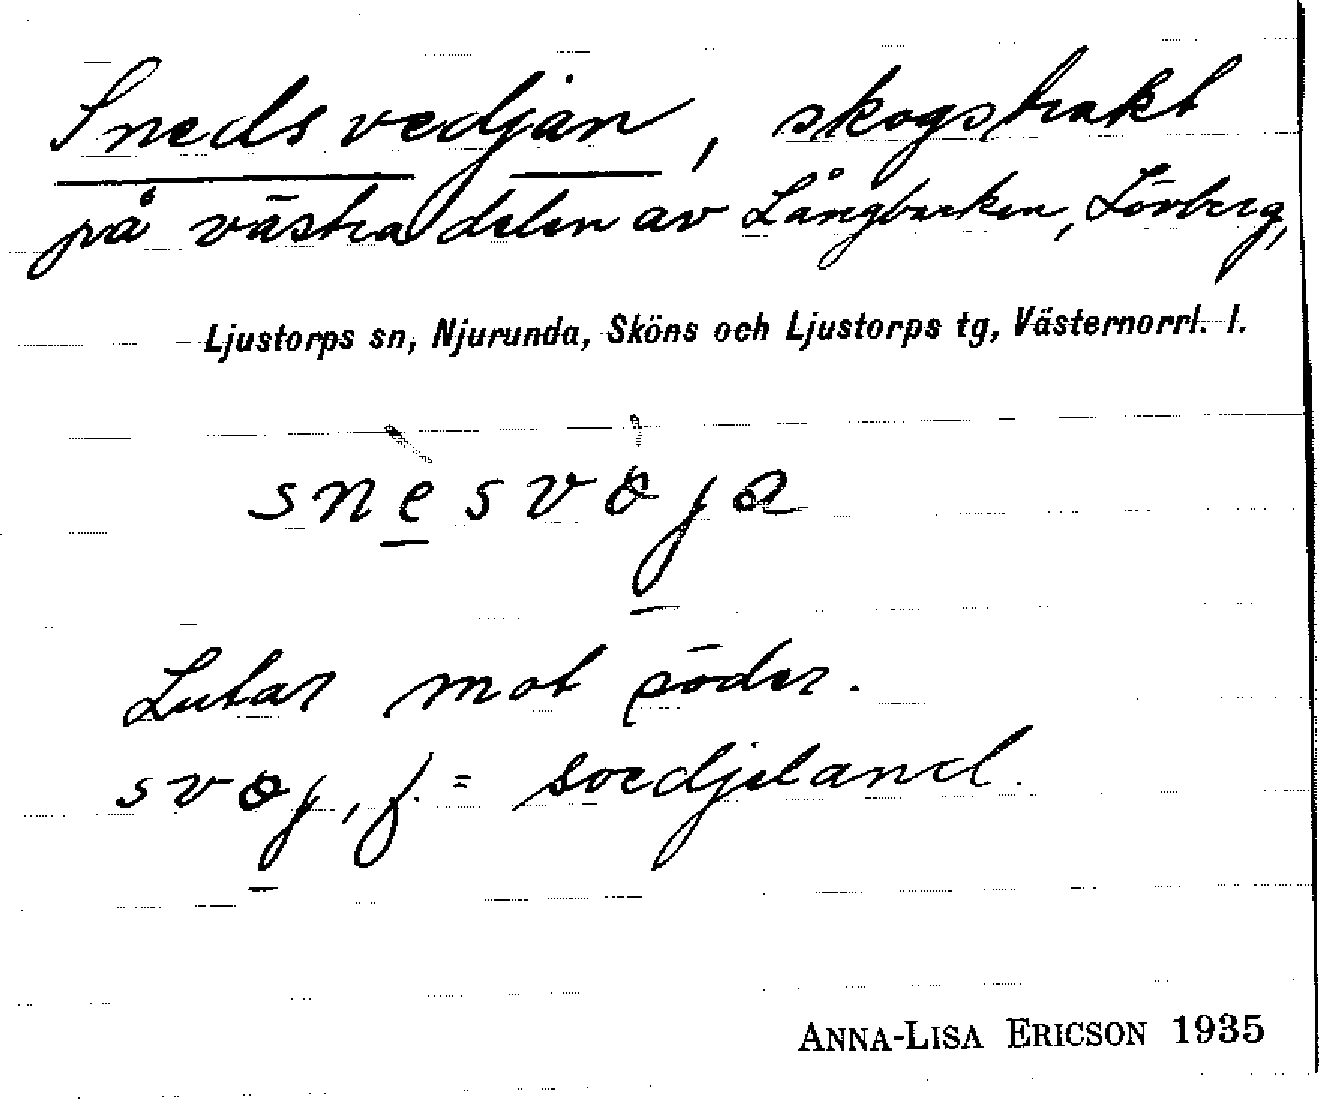 Snedsvedjan, skogstrakt
på västra delen av Långbacken, Lörberg,
Ljustorps sn, Njurunda, Sköns och Ljustorps tg, Västernorrl. l.
Lutar mot söder.
f. = svedjeland.
ANNA-LISA ERICSON 1935